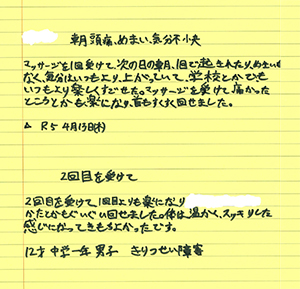 朝 頭痛、めまい、気分不快
マッサージを1回受けて、次の日の朝、1回で起きれたり、めまいが
なく、気分はいつもより、上がっていて、学校とかでも
いつもより楽しくすごせた。マッサージを受けて痛かった
ところとかも、楽になり、首もすくすく回せました。
△ R5 4月13日(木)
2回目を受けて
2回目を受けて1回目よりも楽になり
かたとかもぐいぐい回せました。体は温かく、スッキリした
感じになってきもちよかったです。
12才 中学一年 男子 きりつせい障害